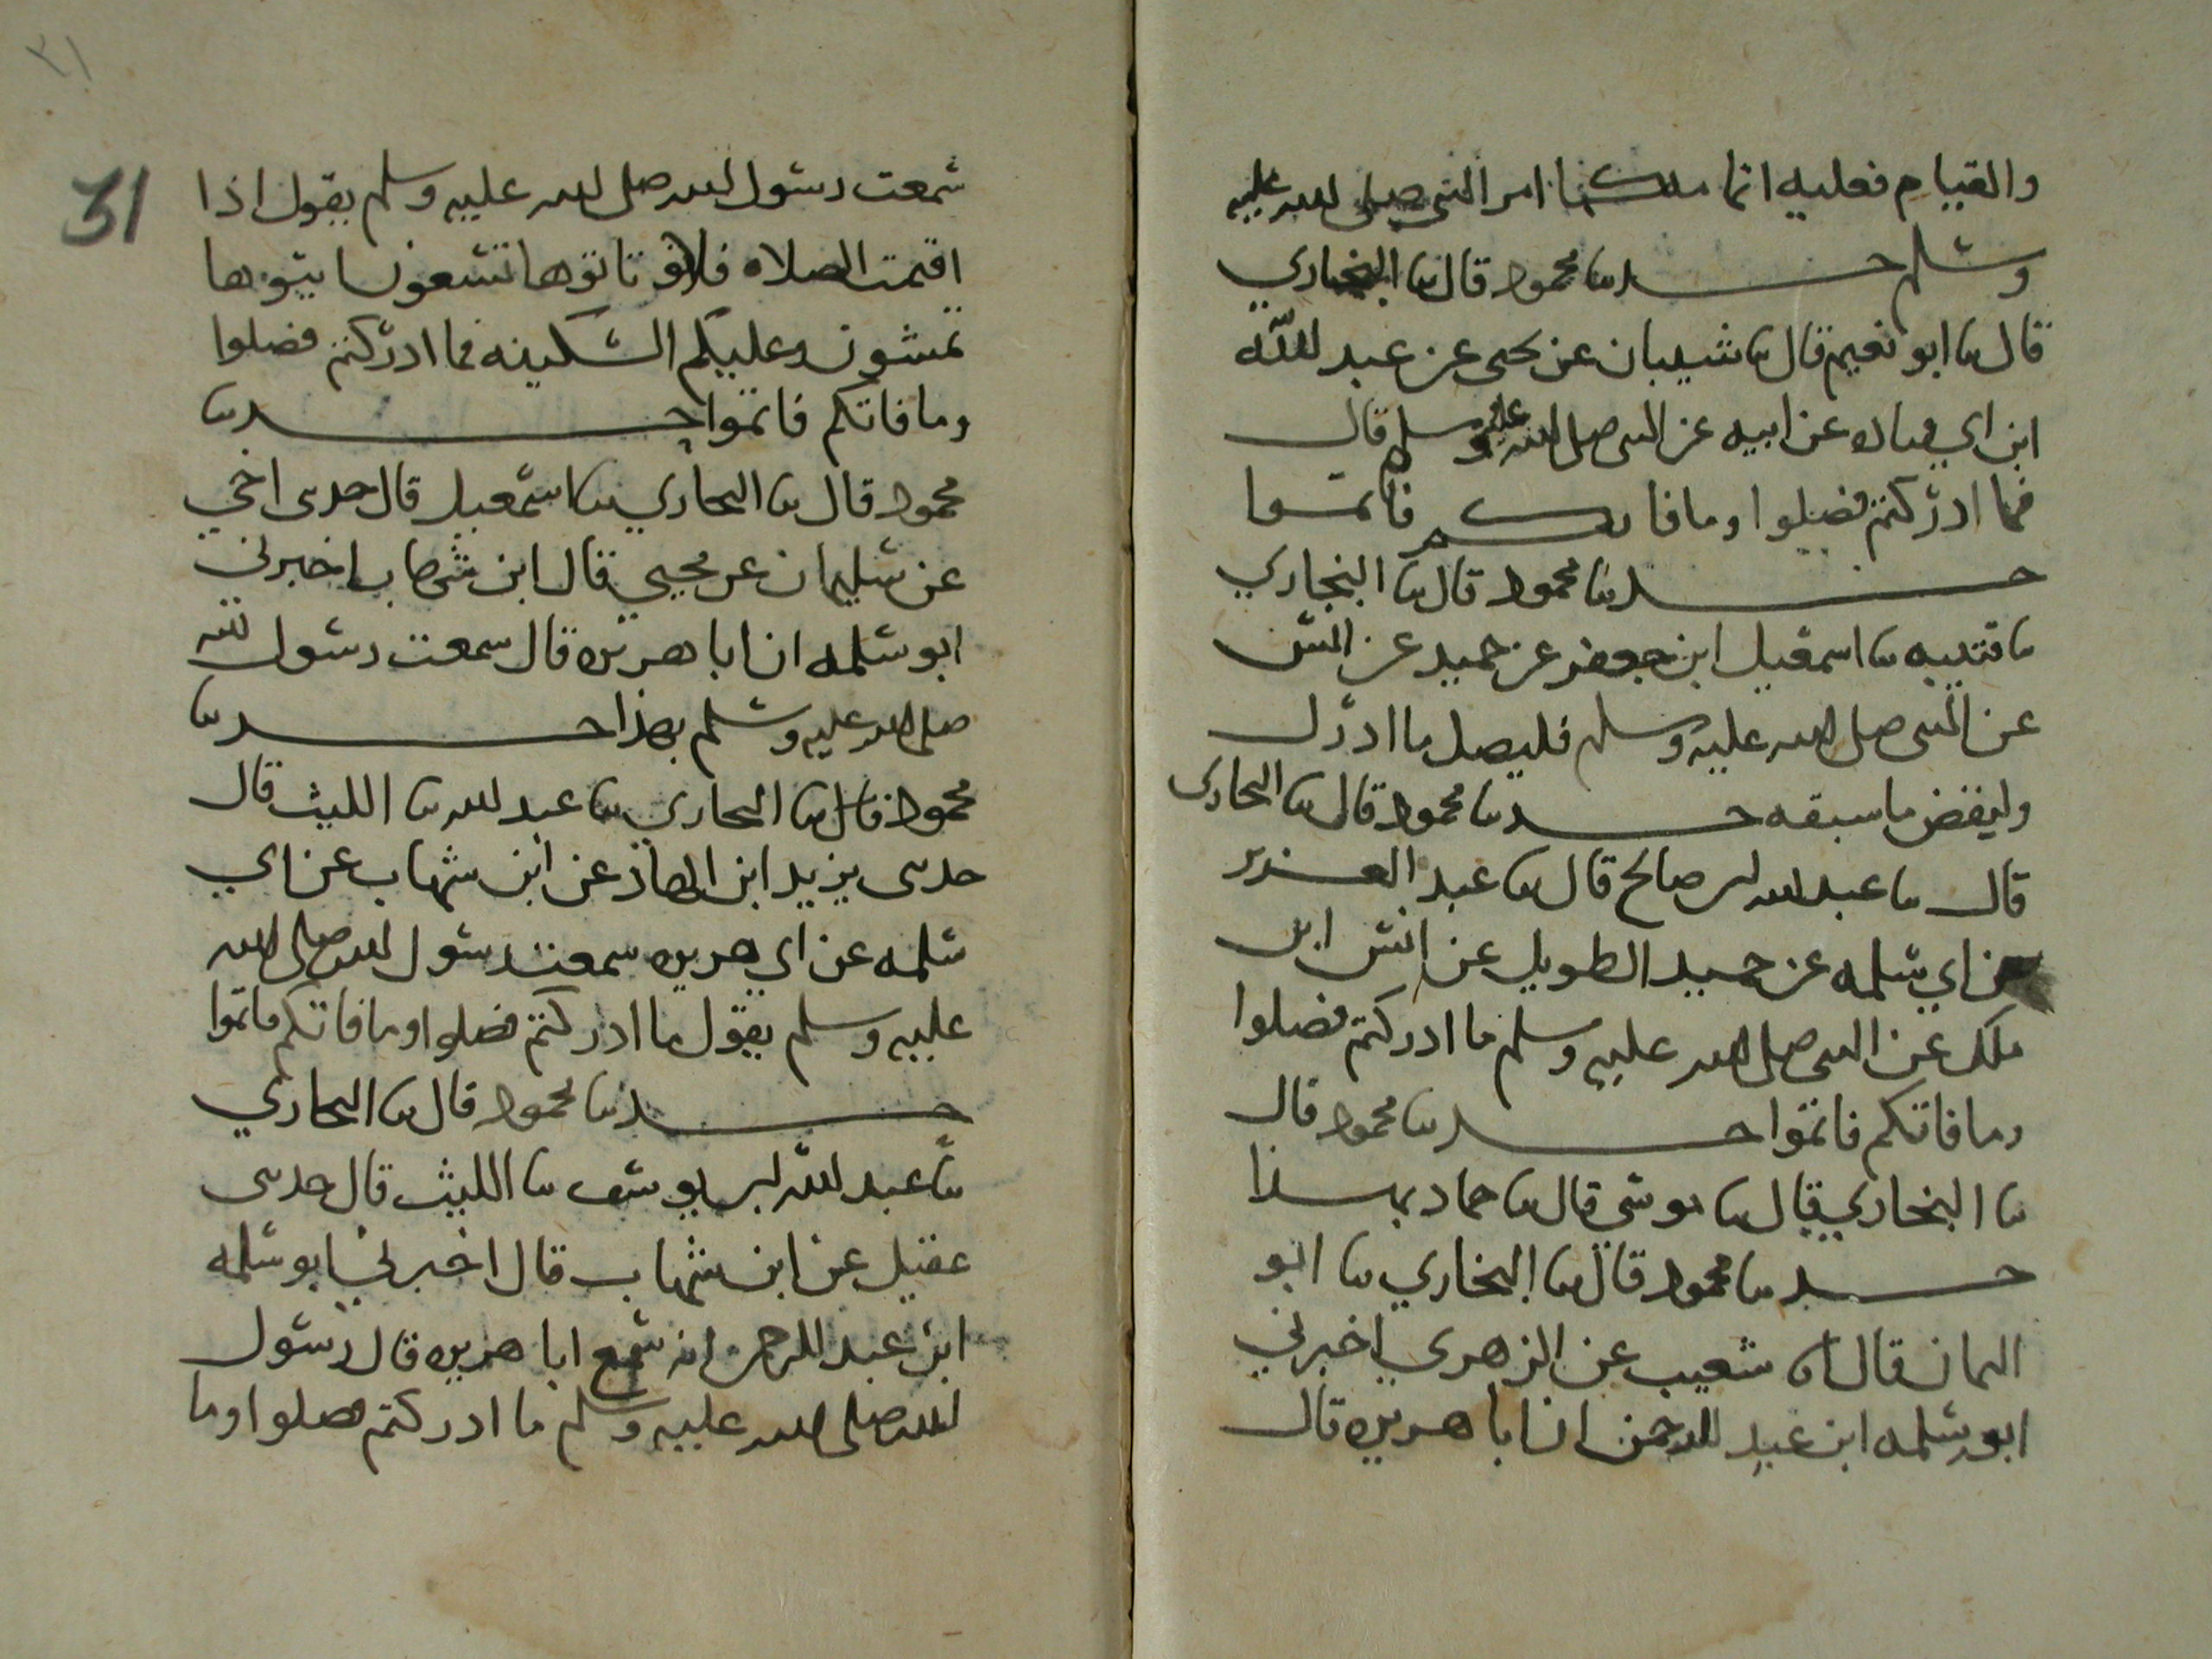 والقيام فعليه انما ملكنا امر النبي صلى الله عليه
وسلم حدثنا محمود قال ثنا البخاري
قال ثنا ابو نعيم قال ثنا شيبان عن يحيى عن عبد الله
ابن ابي قتاده عن ابيه عن النبي صلى الله عليه وسلم قال
فما ادركتم فصلوا وما فاتكم فاتموا
حدثنا محمود قال ثنا البخاري
ثنا قتيبه ثنا اسمعيل ابن جعفر عن حميد عن انس
عن النبي صلى الله عليه وسلم فليصل ما ادرك
وليقض ما سبقه حدثنا محمود قال ثنا البخاري
قال ثنا عبد الله بن صالح قال ثنا عبد العزيز
عن ابي سلمه عن حميد الطويل عن انس ابن
ملك عن النبي صلى الله عليه وسلم ما ادركتم فصلوا
وما فاتكم فاتموا حدثنا محمود قال
ثنا البخاري قال ثنا موسى قال ثنا حماد بهذا
حدثنا محمود قال ثنا البخاري ثنا ابو
اليمان قال انا شعيب عن الزهري اخبرني
ابو سلمه ابن عبد الرحمن ان ابا هريره قال
٣١
31
سمعت رسول الله صلى الله عليه وسلم يقول اذا
اقيمت الصلاه فلا تاتوها تسعون ايتوها
تمشون وعليكم السكينه فما ادركتم فصلوا
وما فاتكم فاتموا حدثنا
محمود قال ثنا البخاري ثنا اسمعيل قال حدثني اخي
عن سليمان عن يحيى قال ابن شهاب اخبرني
ابو سلمه ان ابا هريره قال سمعت رسول الله
صلى الله عليه وسلم بهذا حدثنا
محمود قال ثنا البخاري ثنا عبد الله ثنا الليث قال
حدثني يزيد ابن الهاد عن ابن شهاب عن ابي
سلمه عن ابي هريره سمعت رسول الله صلى الله
عليه وسلم يقول ما ادركتم فصلوا وما فاتكم فاتموا
حدثنا محمود قال ثنا البخاري
ثنا عبد الله بن يوسف ثنا الليث قال حدثني
عقيل عن ابن شهاب قال اخبرني ابو سلمه
ابن عبد الرحمن انه سمع ابا هريره قال رسول
الله صلى الله عليه وسلم ما ادركتم فصلوا وما